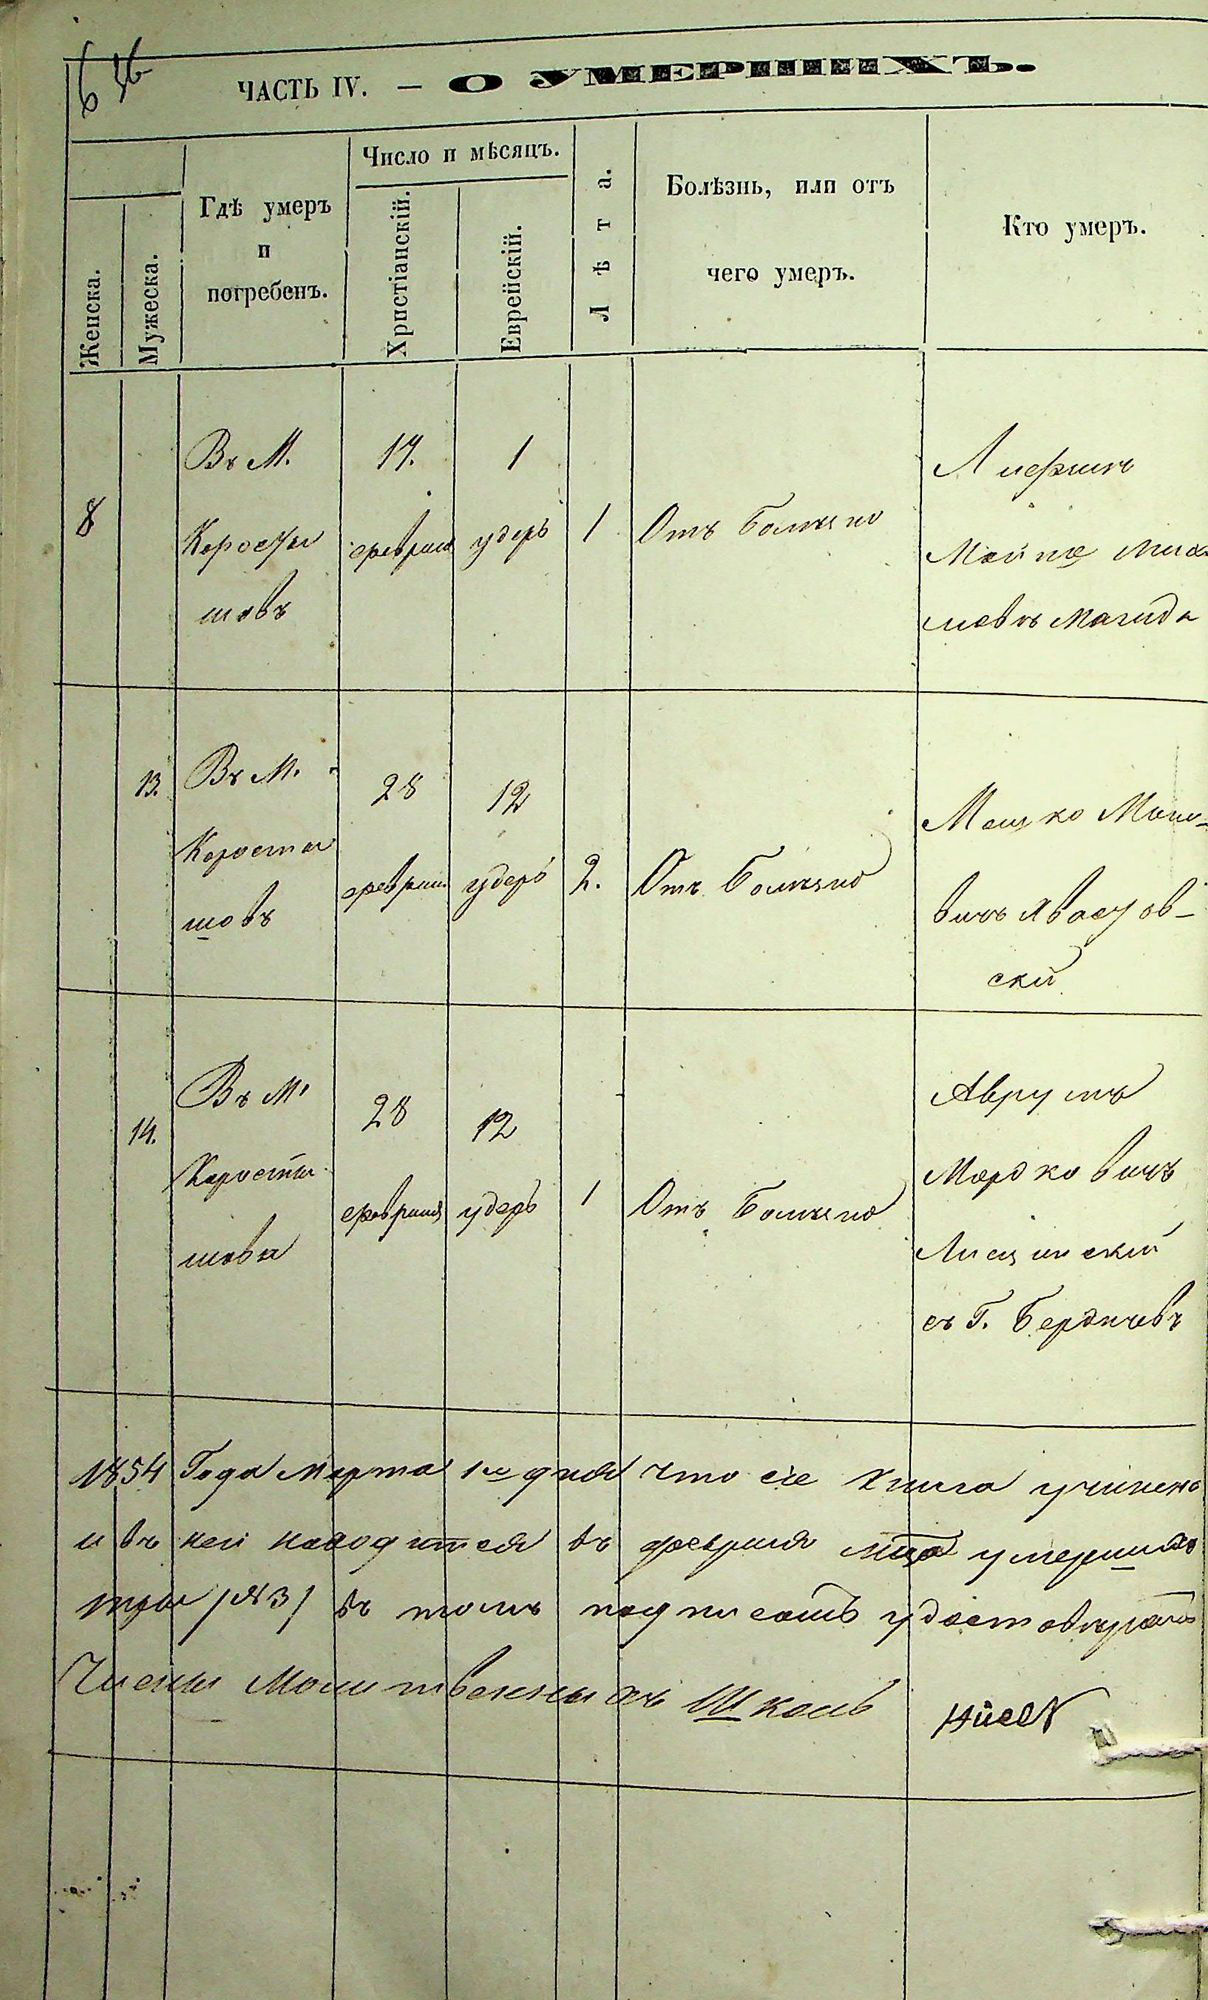 ЧАСТЬ IV. — О УМЕРШИХЪ.
Женска.
Мужеска.
Гдѣ умеръ
и
погребенъ.
Число и мѣсяцъ.
Христіанскій.
Еврейскій.
Лѣта.
Болѣзнь, или отъ
чего умеръ.
Кто умеръ.
8
Въ М.
Коросты
шовъ
17.
февраля
1
удеръ
1
Отъ Болезно
Мағида
13.
Въ М.
Коросты
шовъ
28
февраля
12
удеръ
2.
Отъ Болезно
Мошко
вичъ
ский
14.
Въ М.
Коросты
шова
28
февраля
12
удеръ
1
Отъ Болезно
Аврумъ
Мордковичъ
Лисянский
съ Г. Бердичевъ
1854 Года Марта 1го дня что сіе Книга учинено
и въ ней находится въ февраля мца умерших
три /№3/ въ томъ подписомъ удостоверяемъ
Члены Молитвенныхъ Школь